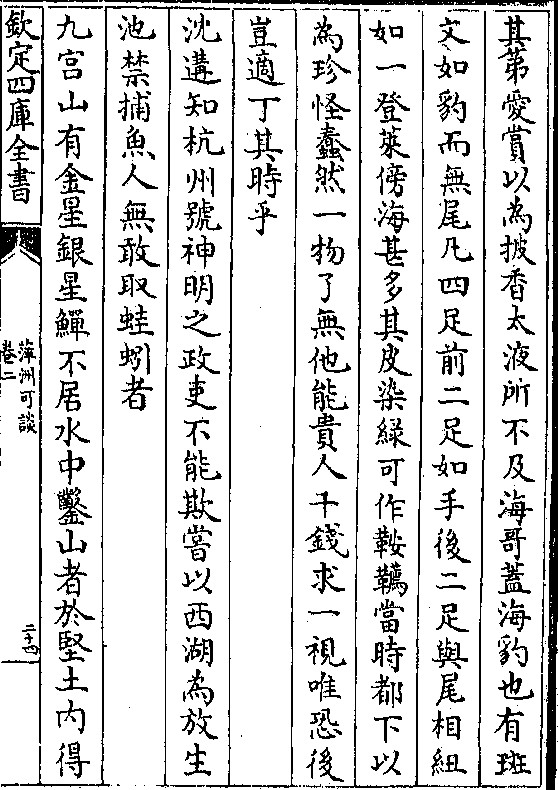 其第愛賞以為披香太液所不及海哥蓋海豹也有斑
文如豹而無尾凡四足前二足如手後二足與尾相紐
如一登萊傍海甚多其皮染綠可作鞍韉當時都下以
為珍怪蠢然一物了無他能貴人千錢求一視唯恐後
豈適丁其時乎
沈遘知杭州號神明之政吏不能欺嘗以西湖為放生
池禁捕魚人無敢取蛙蚓者
九宫山有金星銀星鱓不居水中鑿山者於堅土内得
欽定四庫全書
萍洲可談
卷二
二十四